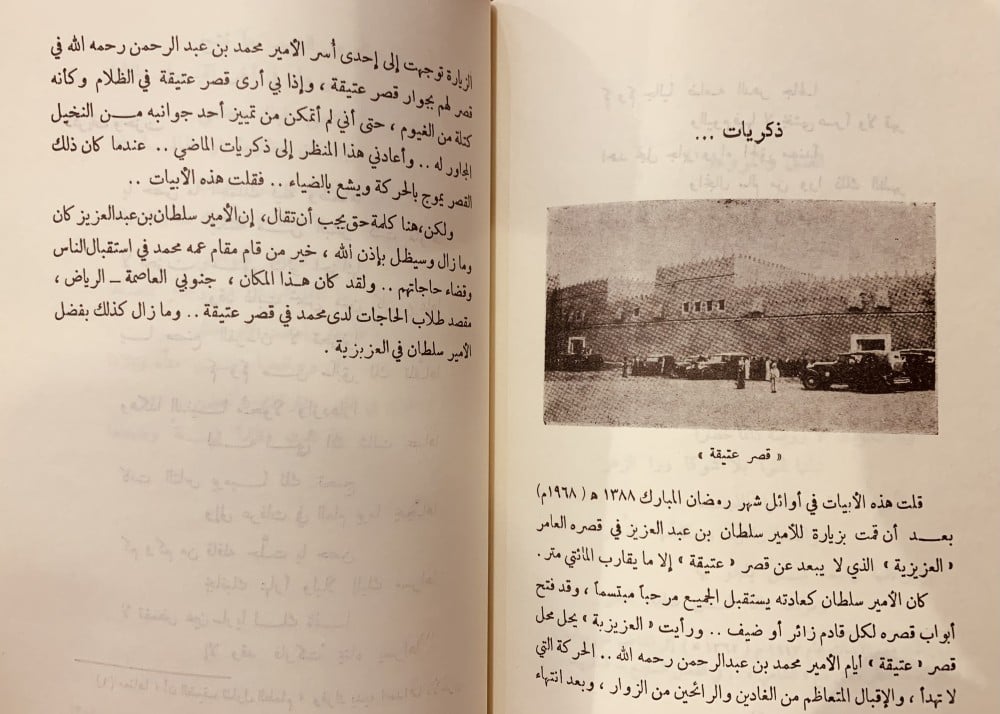 ذكريات ...
« قصر عتيقة »
قلت هذه الأبيات في أوائل شهر رمضان المبارك ١٣٨٨ ه‍ ( ١٩٦٨م )
بعــد أن قمت بزيارة للأمير سلطان بن عبد العزيز في قصره العامر
« العزيزية » الذي لا يبعد عن قصر « عتيقة » إلا ما يقارب المائتي متر .
كان الأمير سلطان كعادته يستقبل الجميع مرحباً مبتسماً ، وقد فتح
أبواب قصره لكل قادم زائر أو ضيف .. ورأيت « العزيزية » يحل محل
قصر « عتيقة » أيام الأمير محمد بن عبدالرحمن رحمه الله .. الحركة التي
لا تهدأ ، والإقبال المتعاظم من الغادين والرائحين من الزوار ، وبعد انتهاء
الزيارة توجهت إلى إحدى أسر الأمير محمد بن عبد الرحمن رحمه الله في
قصر لهم بجوار قصر عتيقة ، وإذا بي أرى قصر عتيقة في الظلام وكأنه
كتلة من الغيوم ، حتى أني لم أتمكن من تمييز أحد جوانبه مــن النخيل
المجاور له .. وأعادني هذا المنظر إلى ذكريات الماضي .. عندما كان ذلك
القصر يموج بالحركة ويشع بالضياء .. فقلت هذه الأبيات ..
ولكن، هنا كلمة حق يجب أن تقال، إن الأمير سلطان بن عبدالعزيز كان
وما زال وسيظل بإذن الله ، خير من قام مقام عمه محمد في استقبال الناس
وقضاء حاجاتهم .. ولقد كان هــذا المكان ، جنوبي العاصمة ــ الرياض ،
مقصد طلاب الحاجات لدى محمد في قصر عتيقة .. وما زال كذلك بفضل
الأمير سلطان في العزيزية .